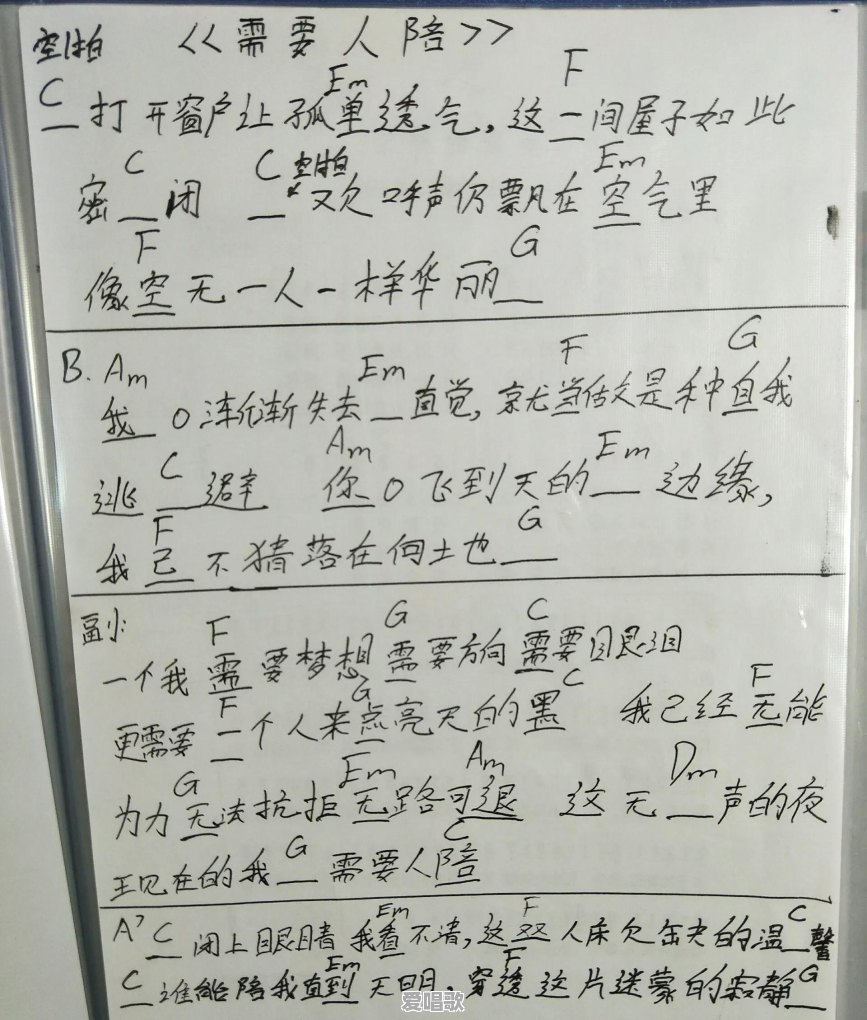 空拍 <<需要人陪>>
C Em F
_打开窗户让孤单透气，这一间屋子如此
C C 空拍 Em
密_闭 _欢呼声仍飘在空气里
F G
像空无一人一样华丽_
B. Am Em F G
我0渐渐失去_直觉，就当做是种自我
C Am Em
逃_避 你0飞到天的_边缘，
F G
我已不猜落在何土也_
副 F G C
一个我需要梦想需要方向需要眼泪
F G C F
更需要一个人来点亮天的黑 我已经无能
G Em Am Dm
为力无法抗拒无路可退 这无_声的夜
G C
现在的我_需要人陪
A' C Em F C
_闭上眼睛我看不清，这双人床欠缺的温_馨
C Em F G
_谁能陪我直到天明，穿透这片迷蒙的寂静_
爱唱歌